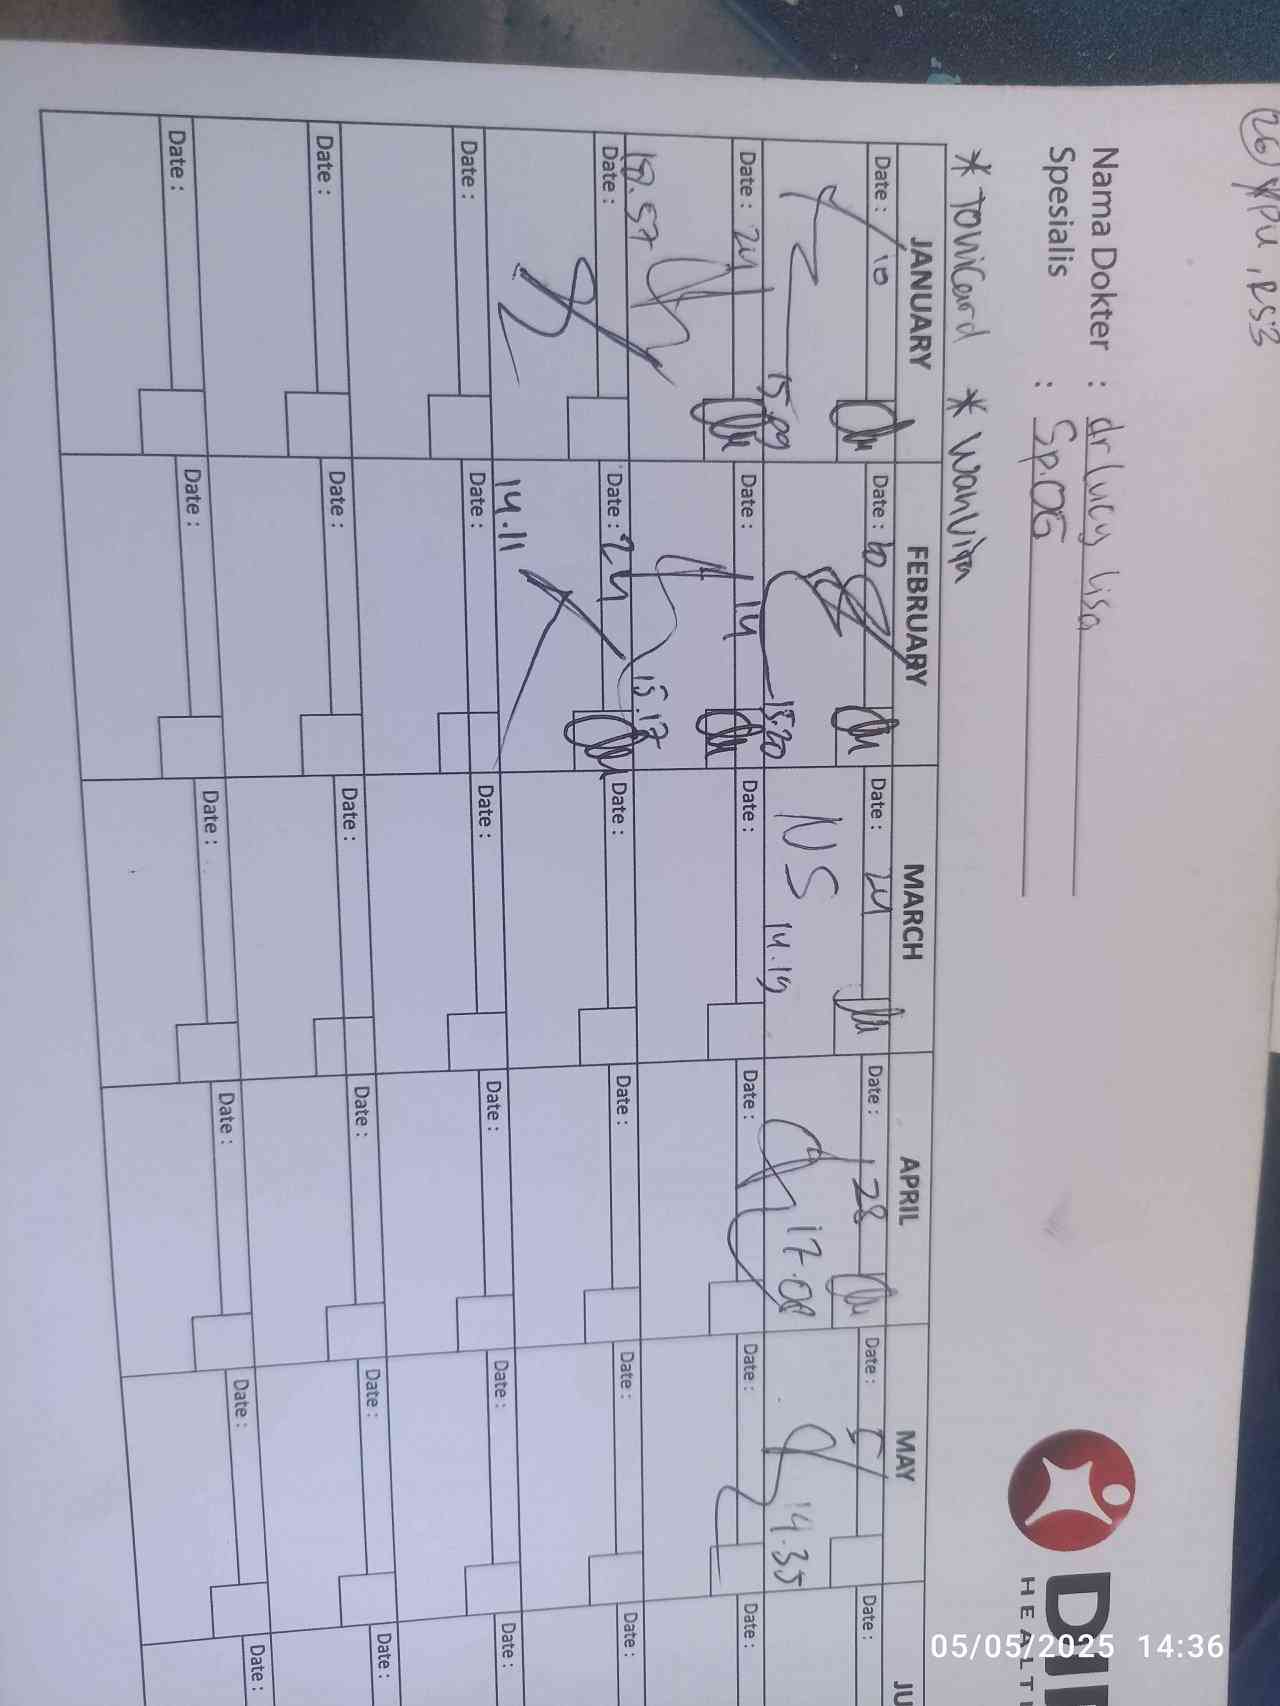 26
RS3
Nama Dokter : dr Lucy Lisa
Spesialis : Sp.OG
HEALT
* Tonicard * Wanvita
JANUARY FEBRUARY MARCH APRIL MAY JU
Date : 10 Date : 10 Date : 24 Date : 28 Date : 5 Date :
15.09 15.20 NS 14.19 17.08 14.35
Date : 24 Date : 14 Date : Date : Date : Date :
18.57 15.17
Date : Date : 24 Date : Date : Date : Date :
14.11
Date : Date : Date : Date : Date : Date :
Date : Date : Date : Date : Date : Date :
Date : Date : Date : Date : Date : Date :
05/05/2025 14:36